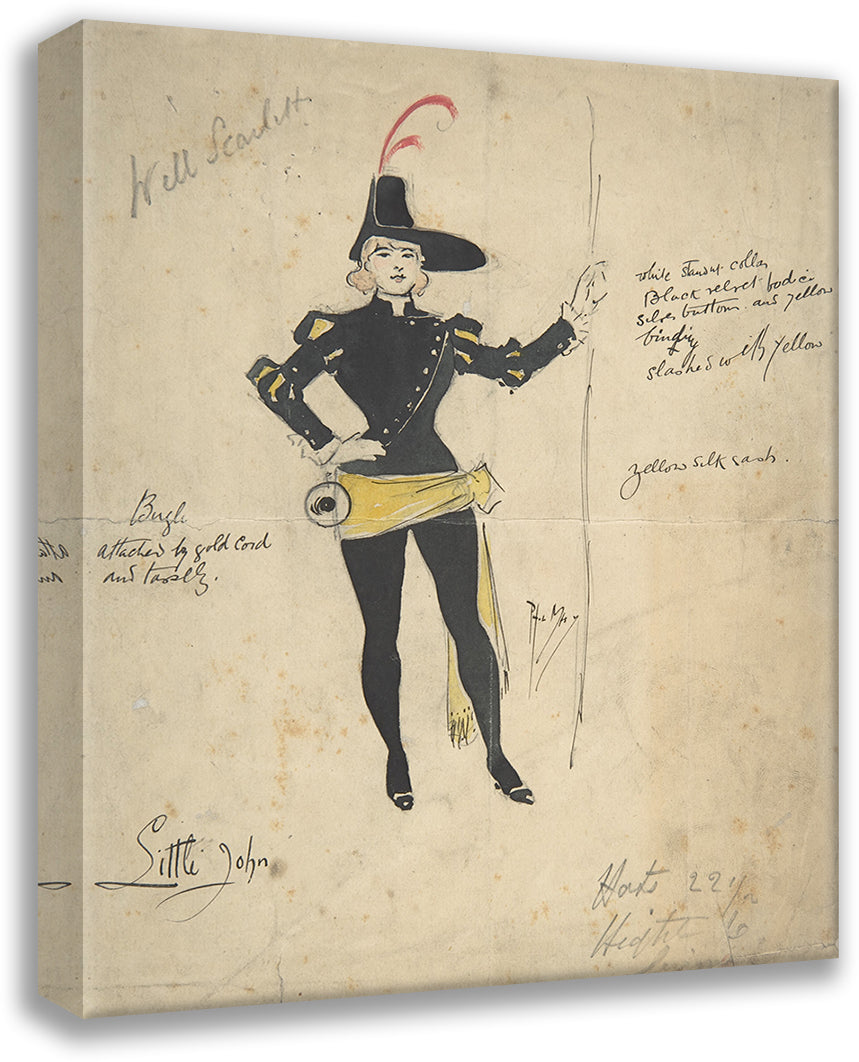 Will Scarlett
white standup collar
Black velvet bodice
silver buttons and yellow
binding
slashed with yellow
yellow silk sash.
Bugle
attached by gold cord
and tassels.
Phil May
Little John
Hat 22 1/2
Height 6